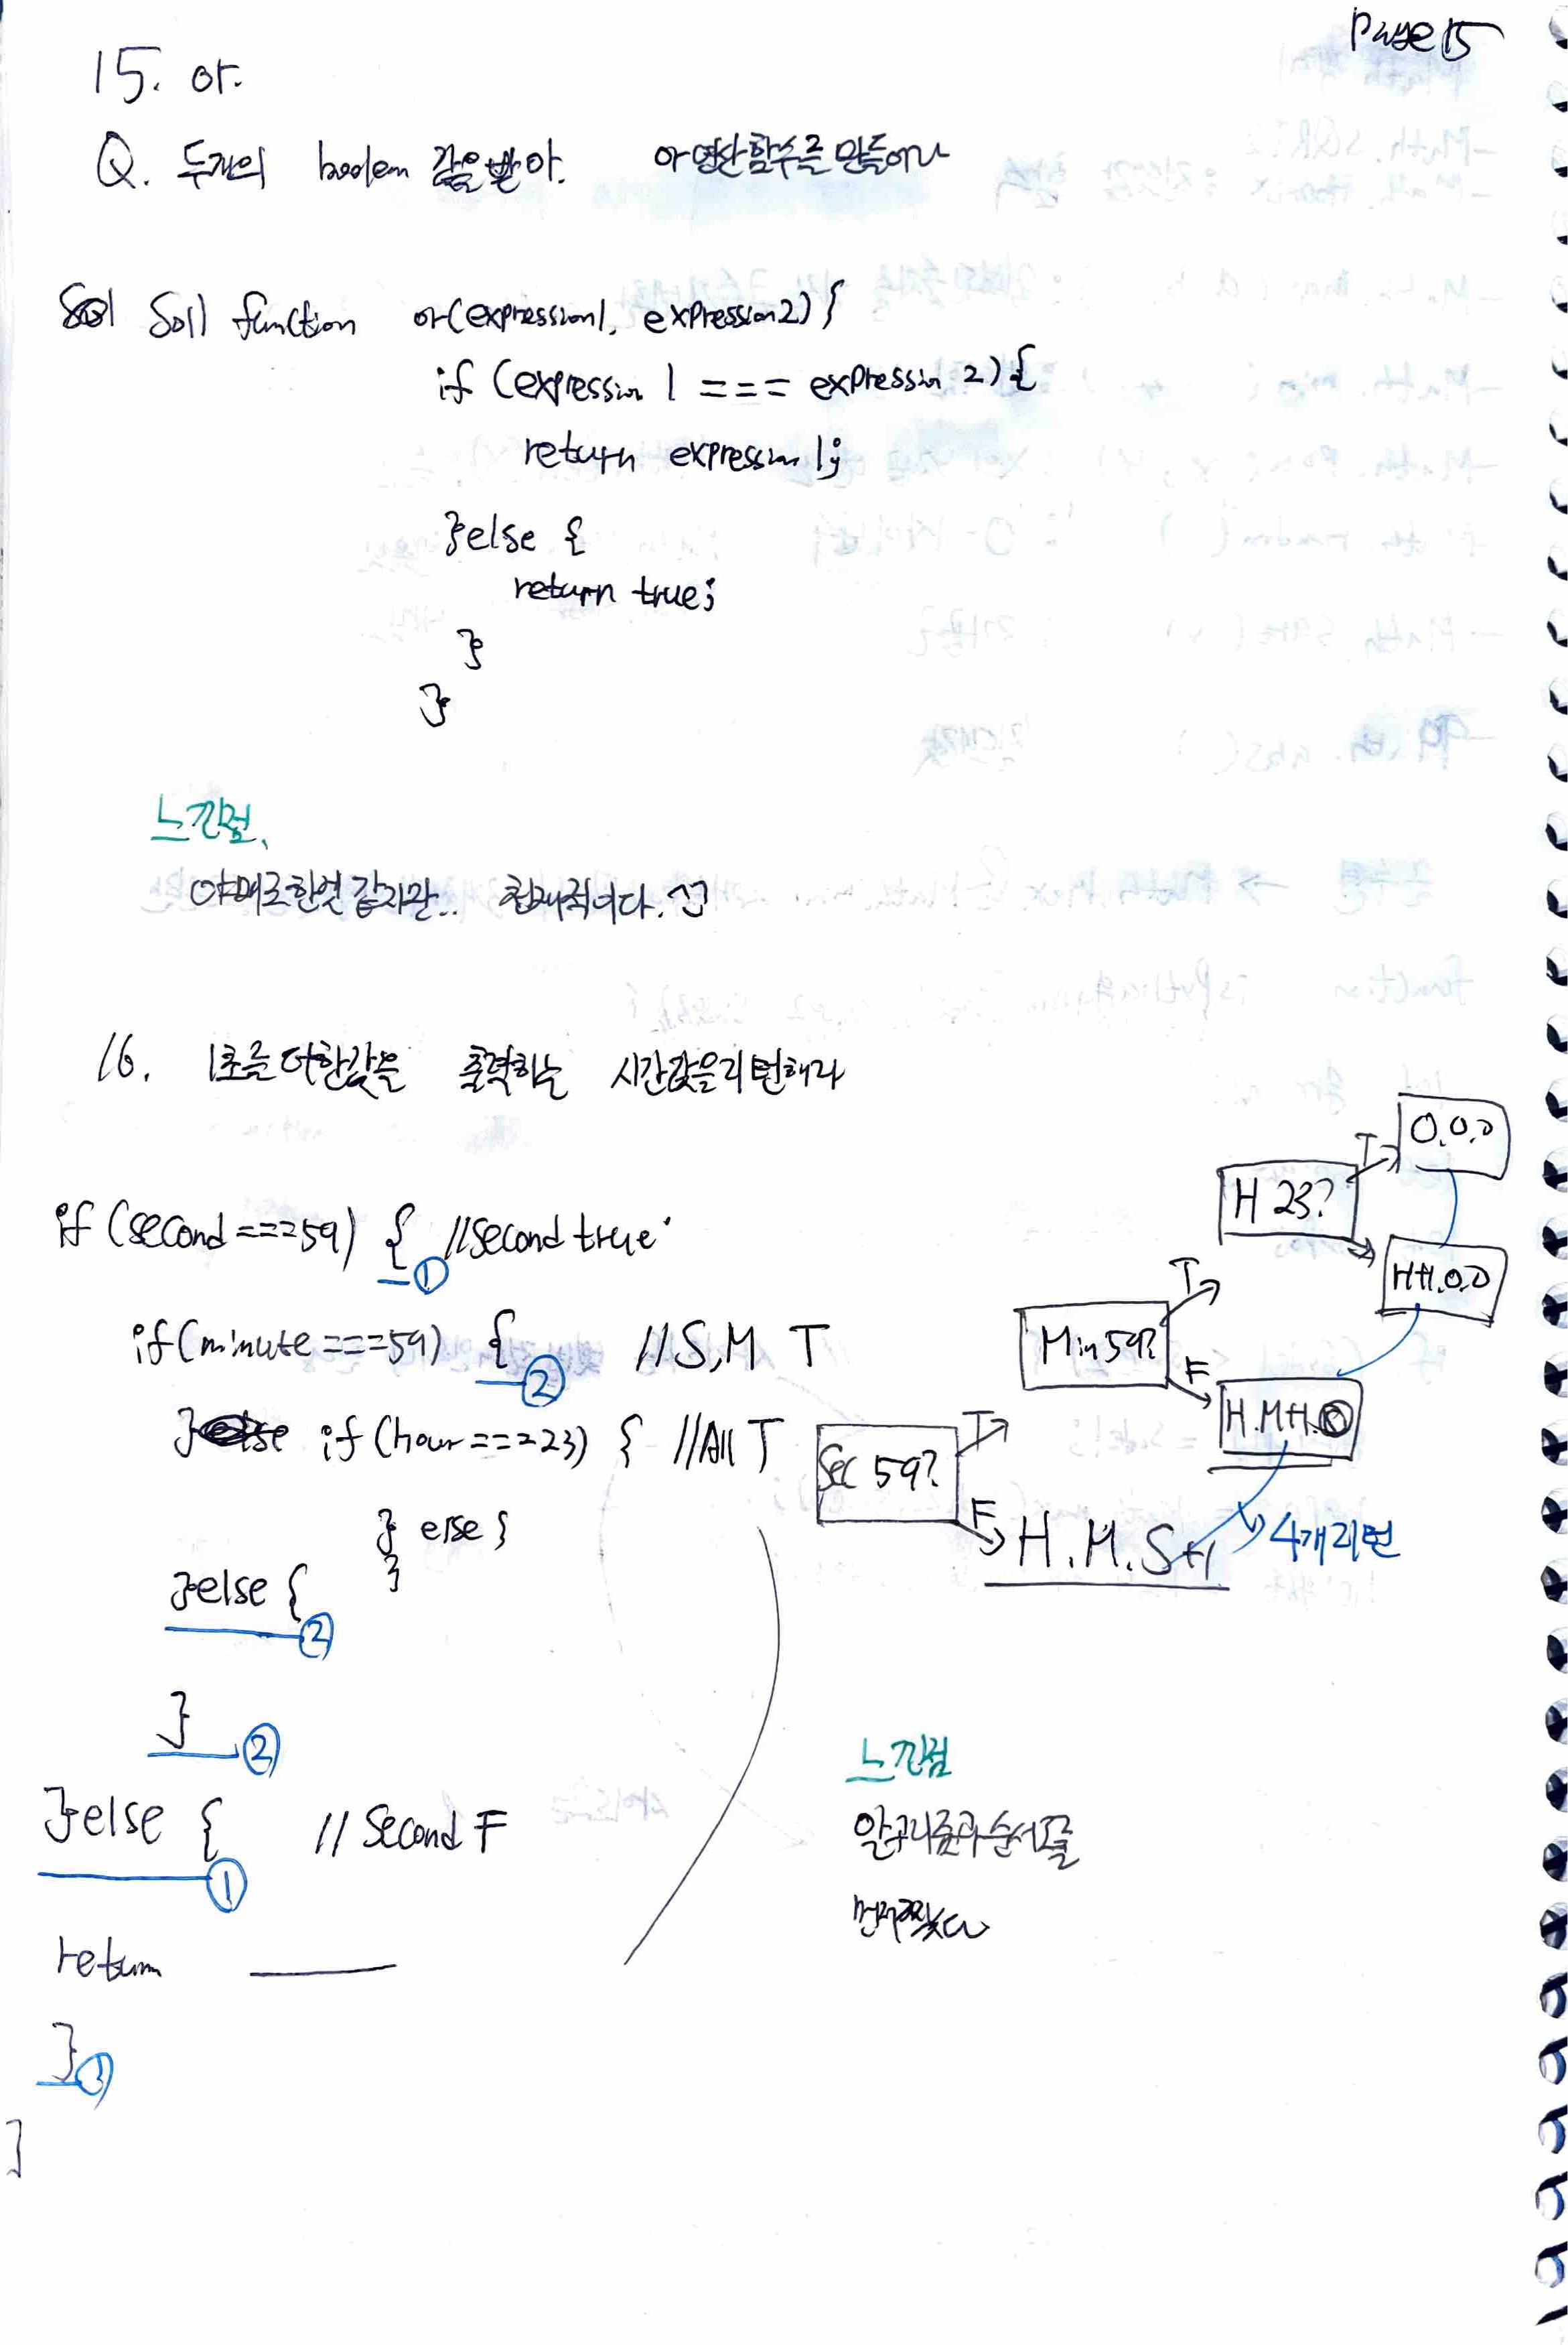 Page 15
15. or.
Q. 두개의 boolean 값을 받아. or 연산함수를 만들어라
Sol) function or(expression1, expression2) {
if (expression 1 === expression 2) {
return expression 1;
} else {
return true;
}
}
느낀점.
야매로한것 같지만..
16. 1초를 더한값을 출력하는 시간값을 리턴해라
if (second === 59) { // second true
①
if (minute === 59) { // S, M T
②
} if (hour === 23) { // All T
} else {
}
} else {
②
}
②
} else { // Second F
①
return
}
①
}
0.0.0
T
H 23?
H+1.0.0
T
Min 59?
F
H.M+1.0
T
Sec 59?
F
H.M.S+1
4개리턴
느낀점
알고리즘과 순서도를
먼저짰다